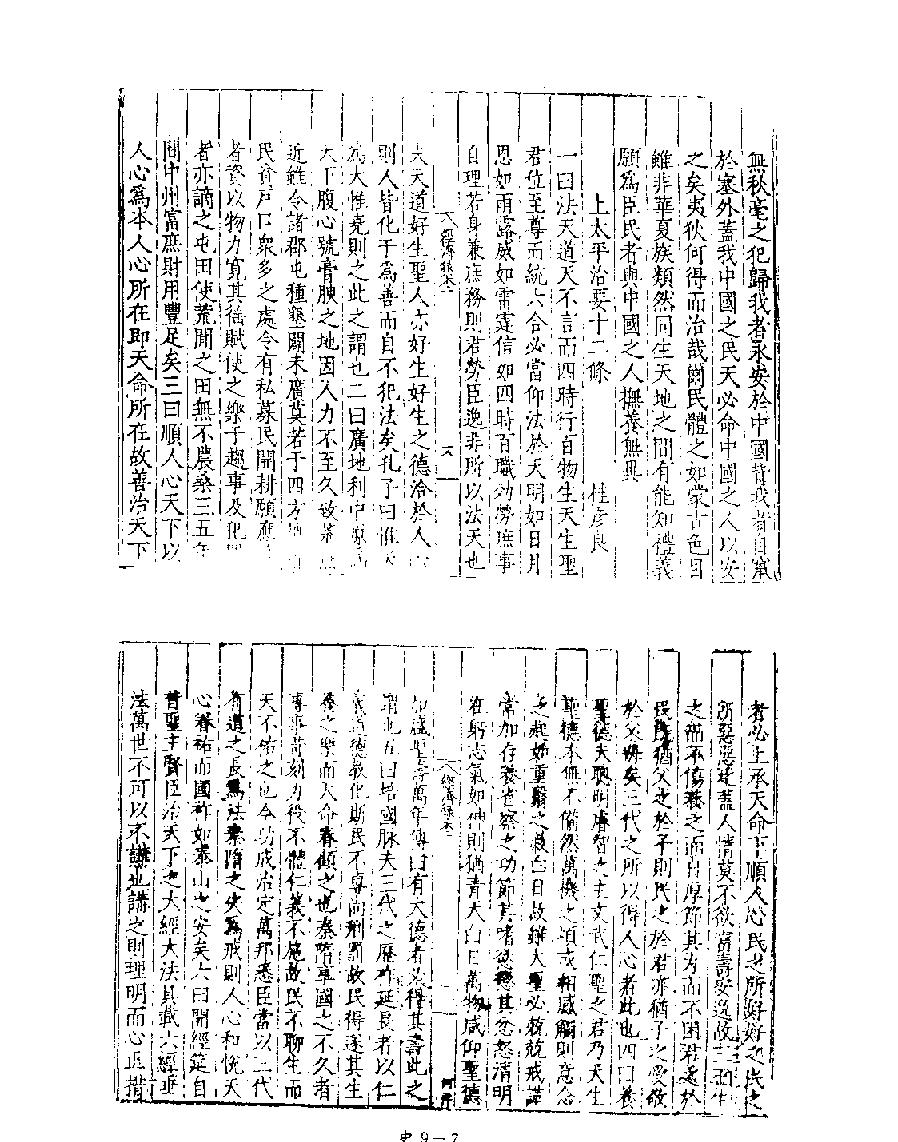 無秋毫之犯歸我者永安於中國背我者自竄
於塞外蓋我中國之民天必命中國之人以安
之矣夷狄何得而治哉爾民體之如蒙古色目
雖非華夏族類然同生天地之間有能知禮義
願為臣民者與中國之人撫養無異
上太平治要十二條 桂彥良
一曰法天道天不言而四時行百物生天生聖
君位至尊而統六合必當仰法於天明如日月
恩如雨露威如雷霆信如四時百職効勞庶事
自理若身兼庶務則君勞臣逸非所以法天也
夫天道好生聖人亦好生好生之德洽於人
則人皆化于為善而自不犯法矣孔子曰惟天
為大惟堯則之此之謂也二曰廣地利中原
天下腹心號膏腴之地因人力不至久致荒
近雖令諸郡屯種墾闢未廣莫若于四方
民貧戶口衆多之處令有司募民開耕願應
者資以物力寬其徭賦使之樂于趨事及犯
者亦謫之屯田使荒閒之田無不農桑三五年
間中州富庶財用豐足矣三曰順人心天下以
人心為本人心所在即天命所在故善治天下
者必上承天命下順人心民之所好好之民之
所惡惡之蓋人情莫不欲富壽安逸故三王生
之而不傷養之而自厚節其力而不困君之於
民猶父之於子則民之於君亦猶子之愛敬
於父母矣三代之所以得人心者此也四曰養
聖德夫聰明睿智之主文武仁聖之君乃天生
聖德本無不備然萬機之頃或相感觸則忿念
之起如重翳之蔽白日故雖大聖必兢兢戒謹
常加存養省察之功節其嗜欲懲其忿怒清明
在躬志氣如神則猶青天白日萬物咸仰聖德
如盛聖壽萬年傳曰有大德者必得其壽此之
謂也五曰培國脉夫三代之歷祚延長者以仁
義道德教化斯民不專尚刑罰故民得遂其生
養之樂而天命眷顧之也秦隋享國之不久者
專事苛刻力役不體仁義不施故民不聊生而
天不祐之也今功成治定萬邦悉臣當以三代
有道之長為法秦隋之失為戒則人心和悅天
心眷祐而國祚如泰山之安矣六曰開經筵自
昔聖主賢臣治天下之大經大法具載六經垂
法萬世不可以不講也講之則理明而心正措
史9—7